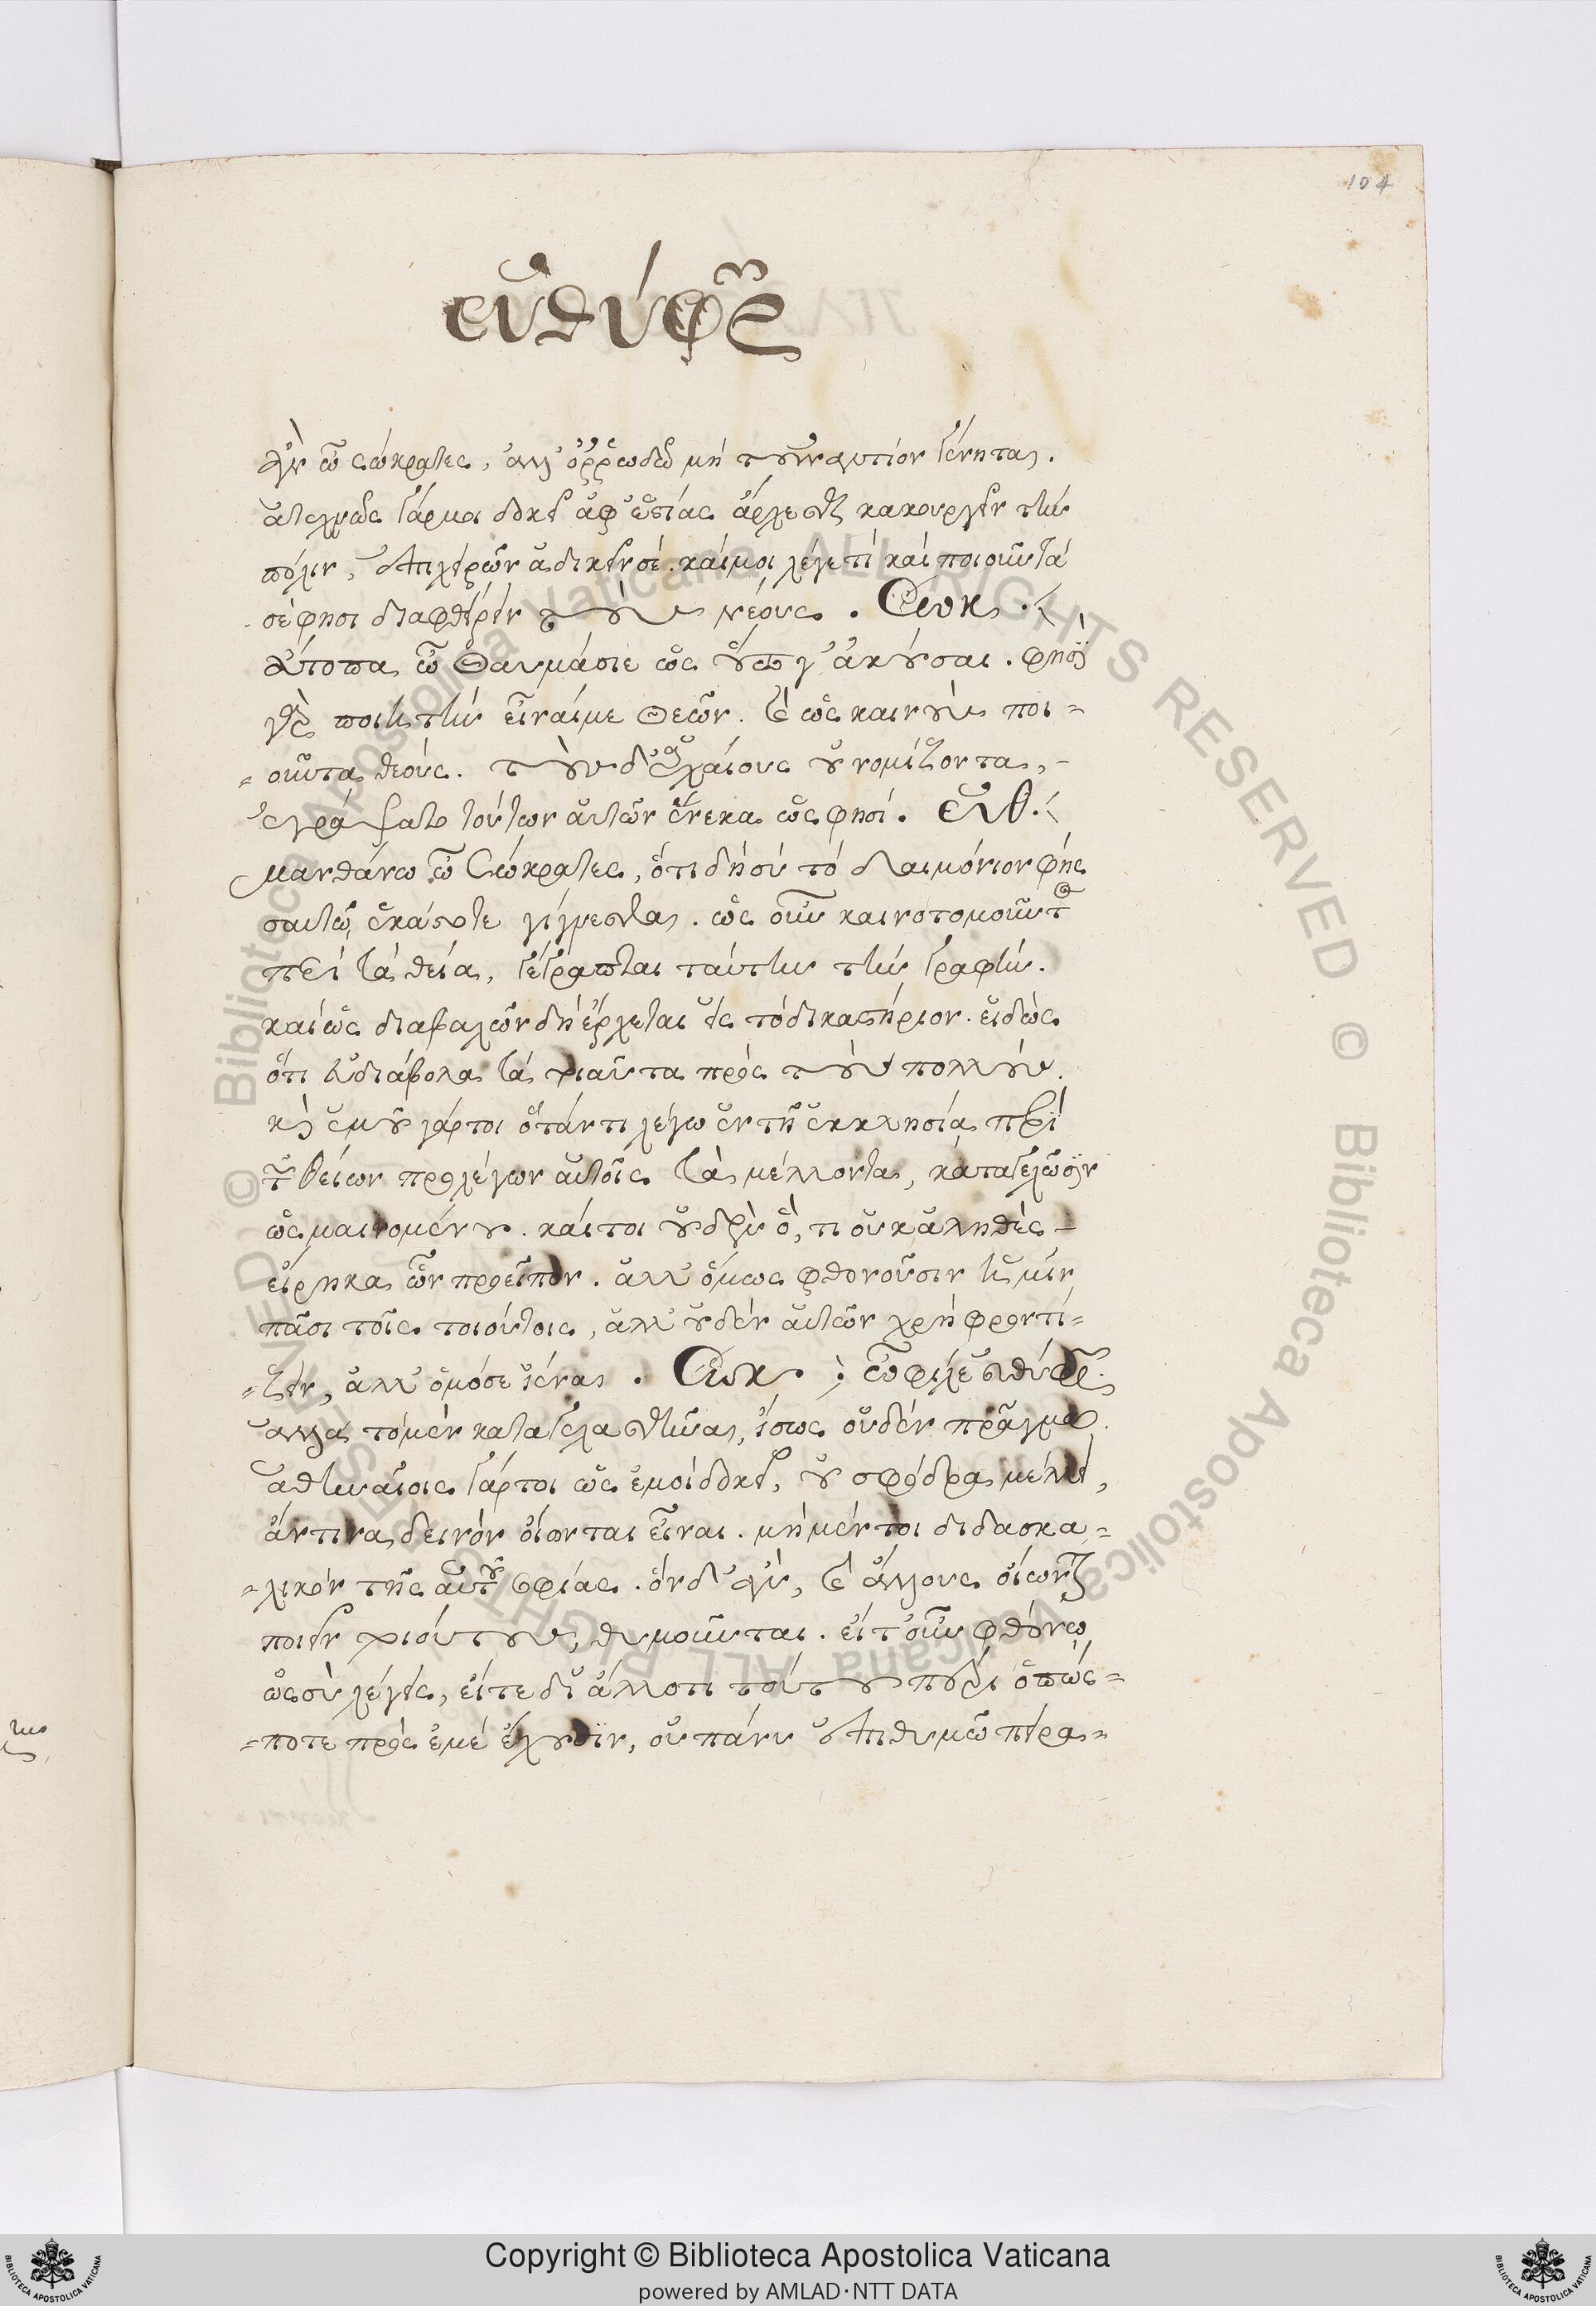 104
εὐθύφρ
ἂν ὦ σώκρατες, ἀλλ' ὀρρωδῶ μὴ τοὐναντίον γένηται.
ἀτεχνῶς γάρ μοι δοκεῖ ἀφ' ἑστίας ἄρχεσθαι κακουργεῖν τὴν
πόλιν, ἐπιχειρῶν ἀδικεῖν σέ. καί μοι λέγε τί καὶ ποιοῦντά
σέ φησι διαφθείρειν τοὺς νέους. Σωκ.
ἄτοπα ὦ θαυμάσιε ὡς οὕτω γ' ἀκοῦσαι. φησὶ
γὰρ ποιητὴν εἶναί με θεῶν. καὶ ὡς καινοὺς ποι=
=οῦντα θεούς. τοὺς δ' ἀρχαίους οὐ νομίζοντα,
ἐγράψατο τούτων αὐτῶν ἕνεκα ὥς φησί. Εὐθ.
μανθάνω ὦ Σώκρατες, ὅτι δὴ σὺ τὸ δαιμόνιον φῂς
σαυτῷ ἑκάστοτε γίγνεσθαι. ὡς οὖν καινοτομοῦντος
περὶ τὰ θεῖα, γέγραπται ταύτην τὴν γραφήν.
καὶ ὡς διαβαλῶν δὴ ἔρχεται εἰς τὸ δικαστήριον. εἰδὼς
ὅτι εὐδιάβολα τὰ τοιαῦτα πρὸς τοὺς πολλούς.
καὶ ἐμοῦ γάρ τοι ὅταν τι λέγω ἐν τῇ ἐκκλησίᾳ περὶ
τῶν θείων προλέγων αὐτοῖς τὰ μέλλοντα, καταγελῶσιν
ὡς μαινομένου. καίτοι οὐδὲν ὅ, τι οὐκ ἀληθὲς
εἴρηκα ὧν προεῖπον. ἀλλ' ὅμως φθονοῦσιν ἡμῖν
πᾶσι τοῖς τοιούτοις, ἀλλ' οὐδὲν αὐτῶν χρὴ φροντί=
=ζειν, ἀλλ' ὁμόσε ἰέναι. Σωκ. ὦ φίλε εὐθύφρ.
ἀλλὰ τὸ μὲν καταγελασθῆναι, ἴσως οὐδὲν πρᾶγμα.
ἀθηναίοις γάρ τοι ὡς ἐμοὶ δοκεῖ, οὐ σφόδρα μέλει,
ἄν τινα δεινὸν οἴωνται εἶναι. μὴ μέντοι διδασκα=
=λικὸν τῆς αὑτοῦ σοφίας. ὃν δ' ἂν, καὶ ἄλλους οἴωνται
ποιεῖν τοιούτους, θυμοῦνται. εἴτ' οὖν φθόνῳ
ὡς σὺ λέγεις, εἴτε δι' ἄλλο τι τούτου πέρι ὅπως=
=ποτε πρὸς ἐμὲ ἔχουσιν, οὐ πάνυ ἐπιθυμῶ πειρα=
© Biblioteca Apostolica Vaticana ALL RIGHTS RESERVED © Biblioteca Apostolica Vaticana ALL RIGHTS RESERVED
Copyright © Biblioteca Apostolica Vaticana
powered by AMLAD·NTT DATA
BIBLIOTECA APOSTOLICA VATICANA
BIBLIOTECA APOSTOLICA VATICANA